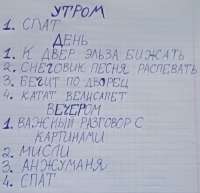 УТРОМ
1. СПАТ
ДЕНЬ
1. К ДВЕР ЭЛЬЗА БИЖАТЬ
2. СНЕГОВИК ПЕСНЯ РАСПЕВАТЬ
3. БЕГИТ ПО ДВОРЕЦ
4. КАТАТ ВЕЛИСАПЕТ
ВЕЧЕРОМ
1. ВАЖНЫЙ РАЗГОВОР С
КАРТИНАМИ
2. МИСЛИ
3. АНЖУМАНЯ
4. СПАТ